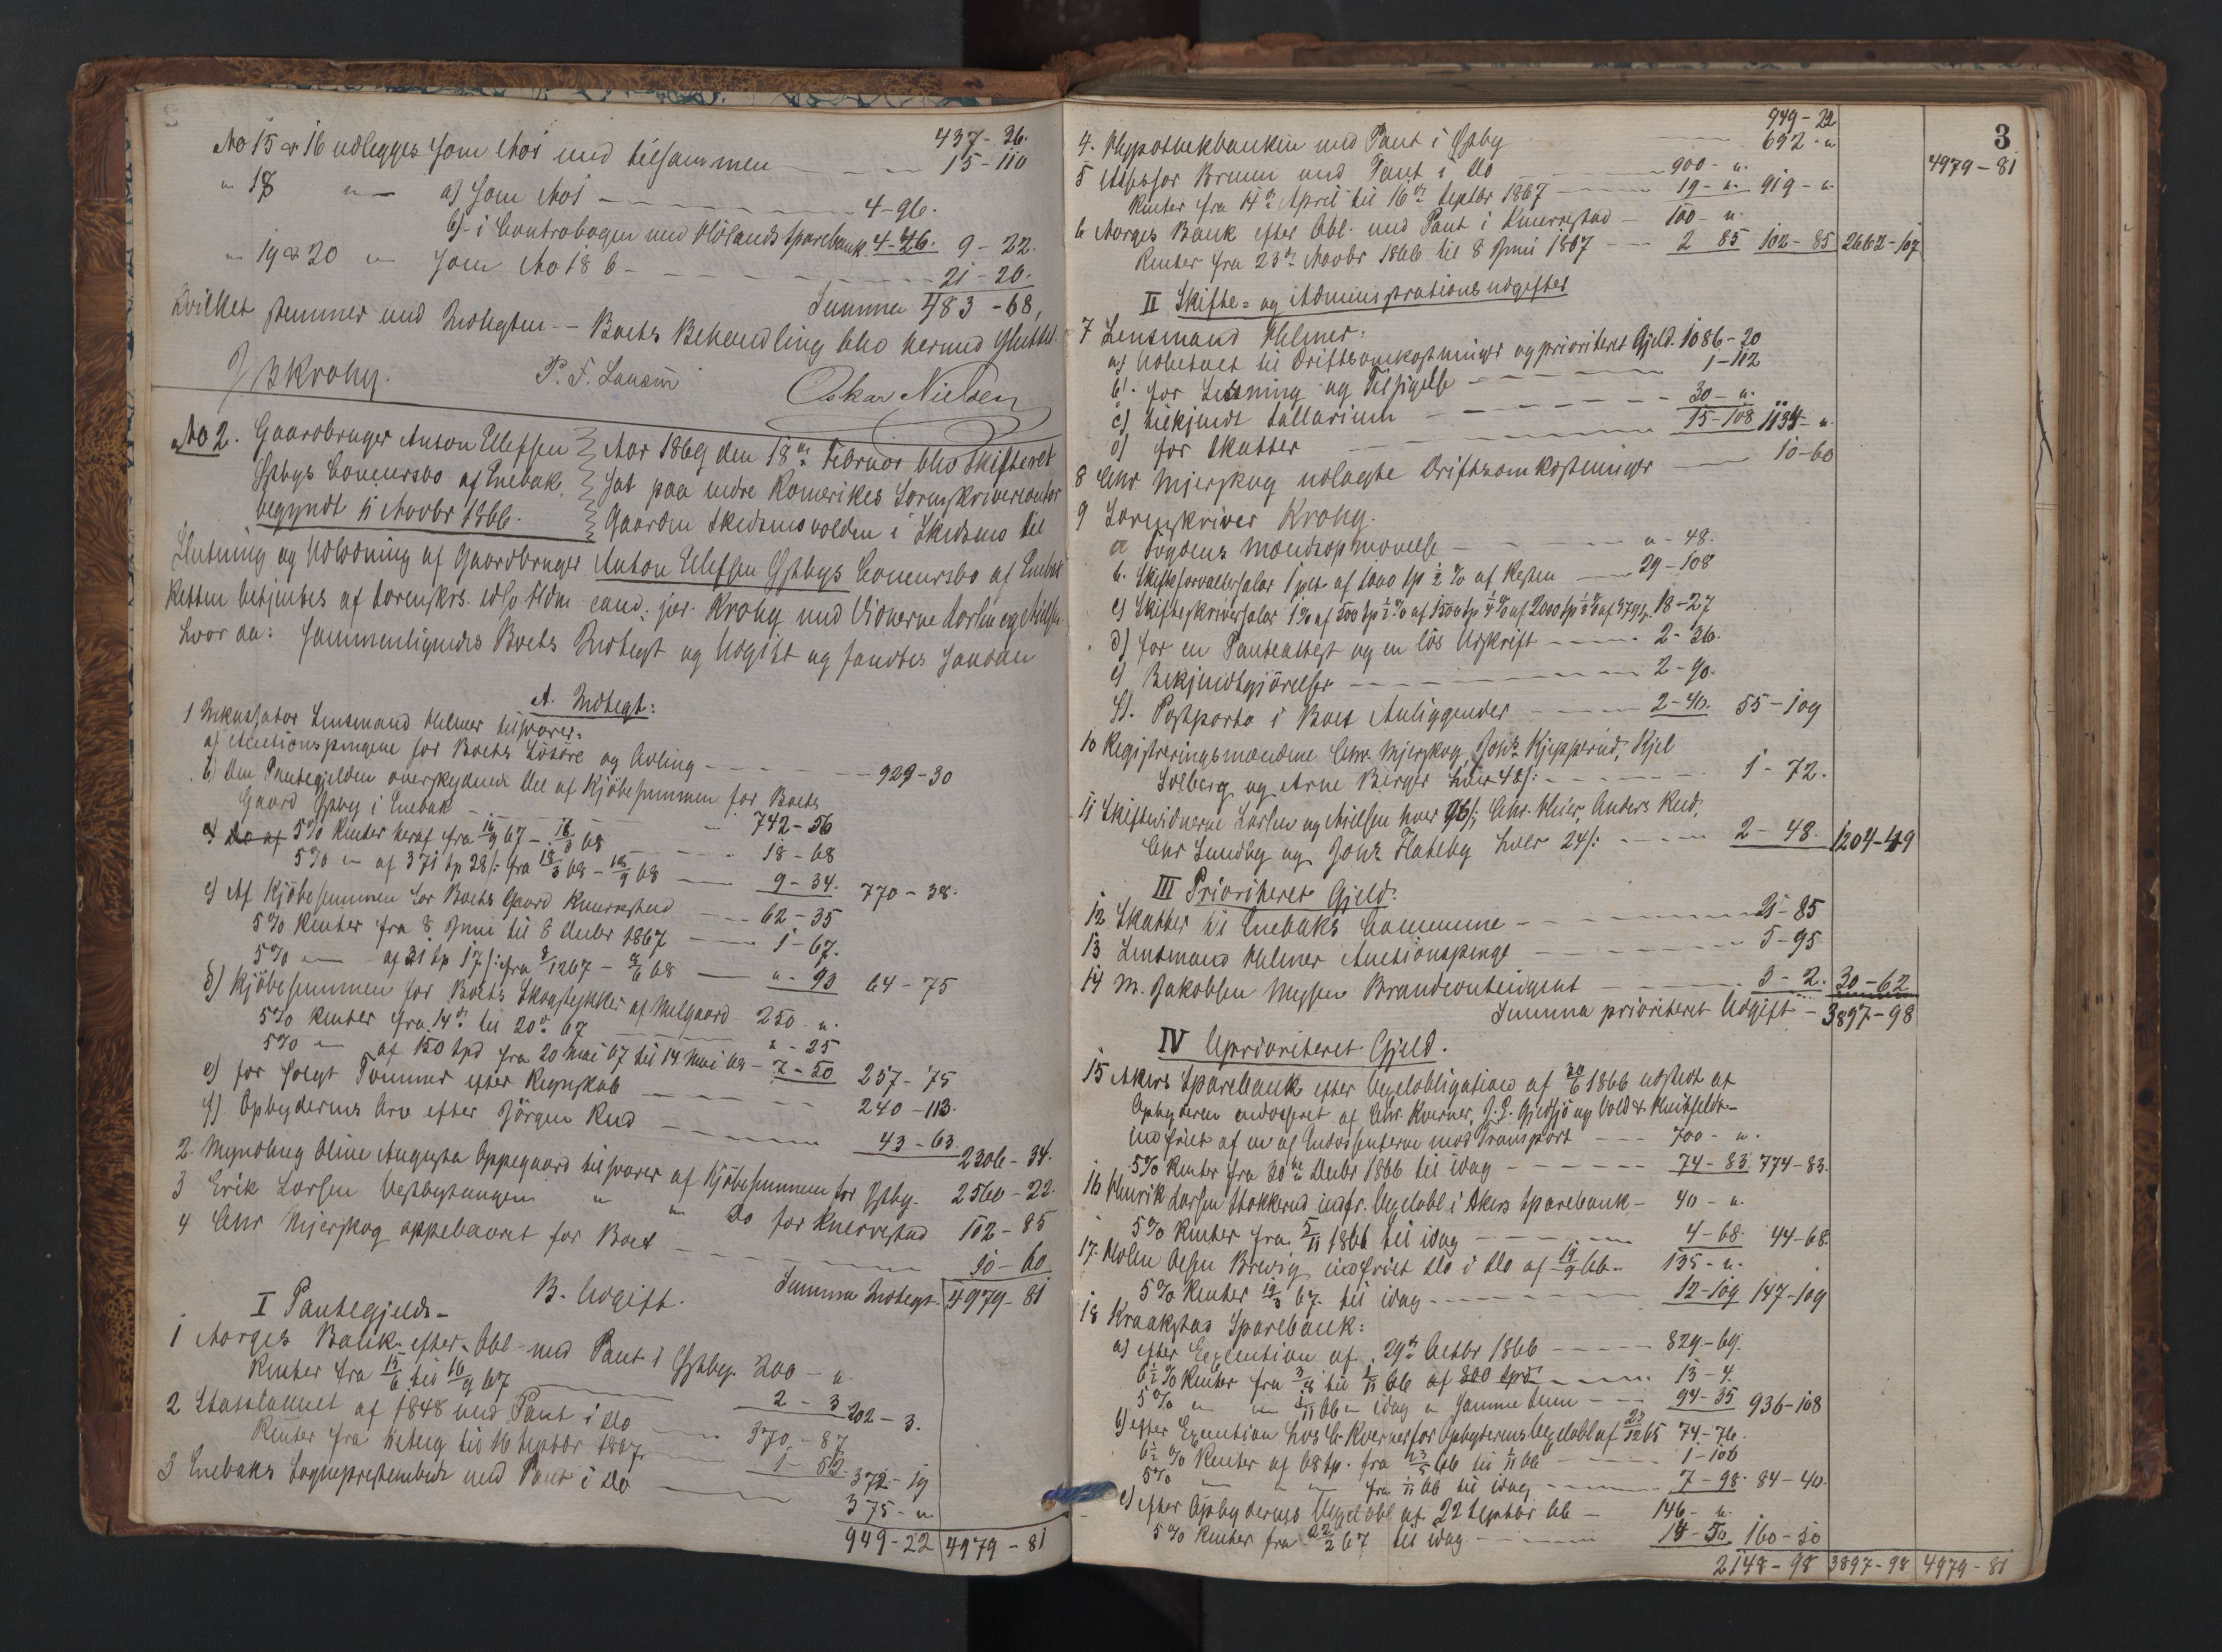 437-36.
No 15 & 16 udlegges som No 1 med tilsammen 15-110
" 18 "— a) som No 1 4-96.
b)- i Contrabogen med Hölands Sparebank 4-46. 9-22.
" 19 & 20 " som No 18 b 21-20.
Summa 483-68,
hvilket stemmer med Indtegten — Boets Behandling blev hermed sluttet.
Krohg. P. F. Larsen Oskar Nielsen
No 2. Gaardbruger Anton Ellefsen
Østbys Concursbo af Enebak,
begyndt 11 Novbr 1866.
Aar 1869 den 18de Februar blev Skifteret
sat paa nedre Romerikes Sorenskrivercontor
Gaarden Skedsmovolden i Skedsmo til
Slutning og Udlodning af Gaardbruger Anton Ellefsen Østbys Concursbo af Enebak
Retten betjentes af Sorenskrs. edsv. Fldm. cand. jur. Krohg med Vidnerne Larsen og Nielsen.
Hvor da: sammenlignedes Boets Indtegt og Udgift og fandtes saadan
A. Indtegt:
1 Inkassator Lensmand Helmer tilsvarer:
a) Auctionspengene for Boets Lösöre og Avling 929-30
b) Den Pantegjelden overskydende Del af Kjöbesummen for Boets
Gaard Østby i Enebak 742-56
c) 5% Renter heraf fra 16/9 67 - 16/3 68 18-68
5% " af 371 Sp 28 s: fra 16/3 68 - 16/9 68 9-34. 770-38.
c) Af Kjöbesummen for Boets Gaard Knerrestad 62-35
5% Renter fra 8 Juni til 8 Decbr 1867 1-67.
5% " af 31 Sp 17 s: fra 8/12 67 - 8/6 68 "-93 64-75
d) Kjöbesummen for Boets Skogstykke af Melgaard 250 "
5% Renter fra 14de til 20de 67 "-25
5% " af 150 Spd fra 20 Mai 67 til 14 Mai 68 - 7-50 257-75
e) for solgt Tömmer efter Regnskab 240-113.
f) Opbyderens Arv efter Jörgen Rud 43-63 2306-34.
2. Myndling Oline Augusta Oppegaard tilsvarer af Kjöbesummen for Østby. 2560-22.
3 Erik Larsen Vestbytangen " " Do for Knerrestad 102-85
4 Chr Mjerskog oppebaaret for Boet 10-60
Summa Indtegt. 4979-81
B. Udgift.
I Pantegjeld.
1 Norges Bank efter Obl. med Pant i Østby 200 - "
Renter fra 15/6 til 16/9 67 2-3 202-3.
2 Statslaanet af 1848 med Pant i Do 370-87
Renter fra til 16 Septbr 1867 1-52. 372-19
3 Enebaks Sogneprestembede med Pant i Do 375-"
949-22 4979-81
3
949-22
4. Hypothekbanken med Pant i Østby 692-" 4979-81
5 Assessor Bruun med Pant i Do 900-"
Renter fra 14de April til 16de Septbr 1867 19-" 919-"
6 Norges Bank efter Obl. med Pant i Knerrestad 100-"
Renter fra 23de Novbr 1866 til 8 Juni 1867 2 85 102-85 2662-107
II Skifte- og Administrationsudgifter
7 Lensmand Helmer:
a) Udbetalt til Driftsomkostninger og prioriteret Gjeld. 1086-20
b). for Lösning og Tilsigelse 1-112
c) tilkjendt Sallarium 30-"
d) for Skatter 15-108 1134-"
8 Chr Mjerskog udlagte Driftsomkostninger 10-60
9 Sorenskriver Krohg.
a Fogdens Mandsopnævnelse "-48.
b. Skifteforvaltersalær 1 pct. af 1000 Sp 1/2 % af Resten 29-108
c) Skifteskriversalær 1% af 500 Sp 1/2 % af 1500 Sp 1/4 % af 2000 Sp 1/8 % af 979 Sp. 18-27
d) for en Panteattest og en lös Udskrift 2-36.
e) Bekjendtgjörelser 2-90.
f). Postporto i Boets Anliggender 2-40. 55-109
10 Registreringsmændene Chr. Mjerskog, Johs Kjepperud, Kjel
Solberg og Arne Berger hver 48 s: 1-72.
11 Skiftevidnerne Larsen og Nielsen hver 96 s; Chr. Meier, Anders Rud,
Chr Lundby og Johs Flateby hver 24 s: 2-48. 1204-49
III Prioriteret Gjeld:
12 Skatter til Enebaks Commune 21-85
13 Lensmand Helmer Auctionspenge 5-95
14 M. Jakobsen Mysen Brandcontingent 3-2. 30-62
Summa prioriteret Udgift 3897-98
IV Uprioriteret Gjeld.
15 Akers Sparebank efter Vexelobligation af 30/6 1866 udstedt af
Opbyderen endosseret af Chr. Kverner, J. G. Gjeldsjö og Vold & Huitfeldt
indfriet af en af Endossenterne mod Transport 700-".
5% Renter fra 30te Decbr 1866 til idag 74-83 774-83.
16 Henrik Larsen Stokkerud indfr. Vexelobl i Akers Sparebank 40-"
5% Renter fra 5/11 1866 til idag 4-68. 44-68.
17. Holm Olsen Brevig indfriet Do i Do af 19/9 66 135-".
5% Renter 19/3 67. til idag 12-109 147-109
18 Kraakstad Sparebank:
a) efter Execution af 29de Octbr 1866 829-69.
6 1/2 % Renter fra 3/8 til 1/11 66 af 800 Spd 13-4.
5% " " 1/11 66 " idag " samme Sum 94-35 936-108
b) efter Execution hos C. Kverner for Opbyderens Vexelobl af 22/12 65 74-76.
6 1/2 % Renter af 68 Sp. fra 23/5 66 til 1/11 66 1-106
5% " " " fra 1/11 66 til idag 7-98. 84-40.
c) efter Opbyderens Vexelobl af 22 Septbr 66 146-"
5% Renter fra 22/2 67 til idag 14-50. 160-50
2148-98 3897-98 4979-81